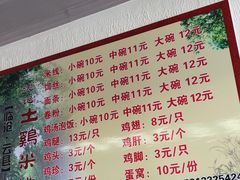 米线 小碗10元 中碗11元 大碗12元
饵丝 小碗10元 中碗11元 大碗12元
面条 小碗10元 中碗11元 大碗12元
卷粉 小碗10元 中碗11元 大碗12元
鸡汤泡饭 小碗10元 中碗11元 大碗12元
鸡腿 13元/只 鸡翅 8元/只
鸡头 3元/个 鸡肝 3元/个
鸡珍 3元/个 鸡脚 3元/只
蛋窝 10元/份
土鷄米